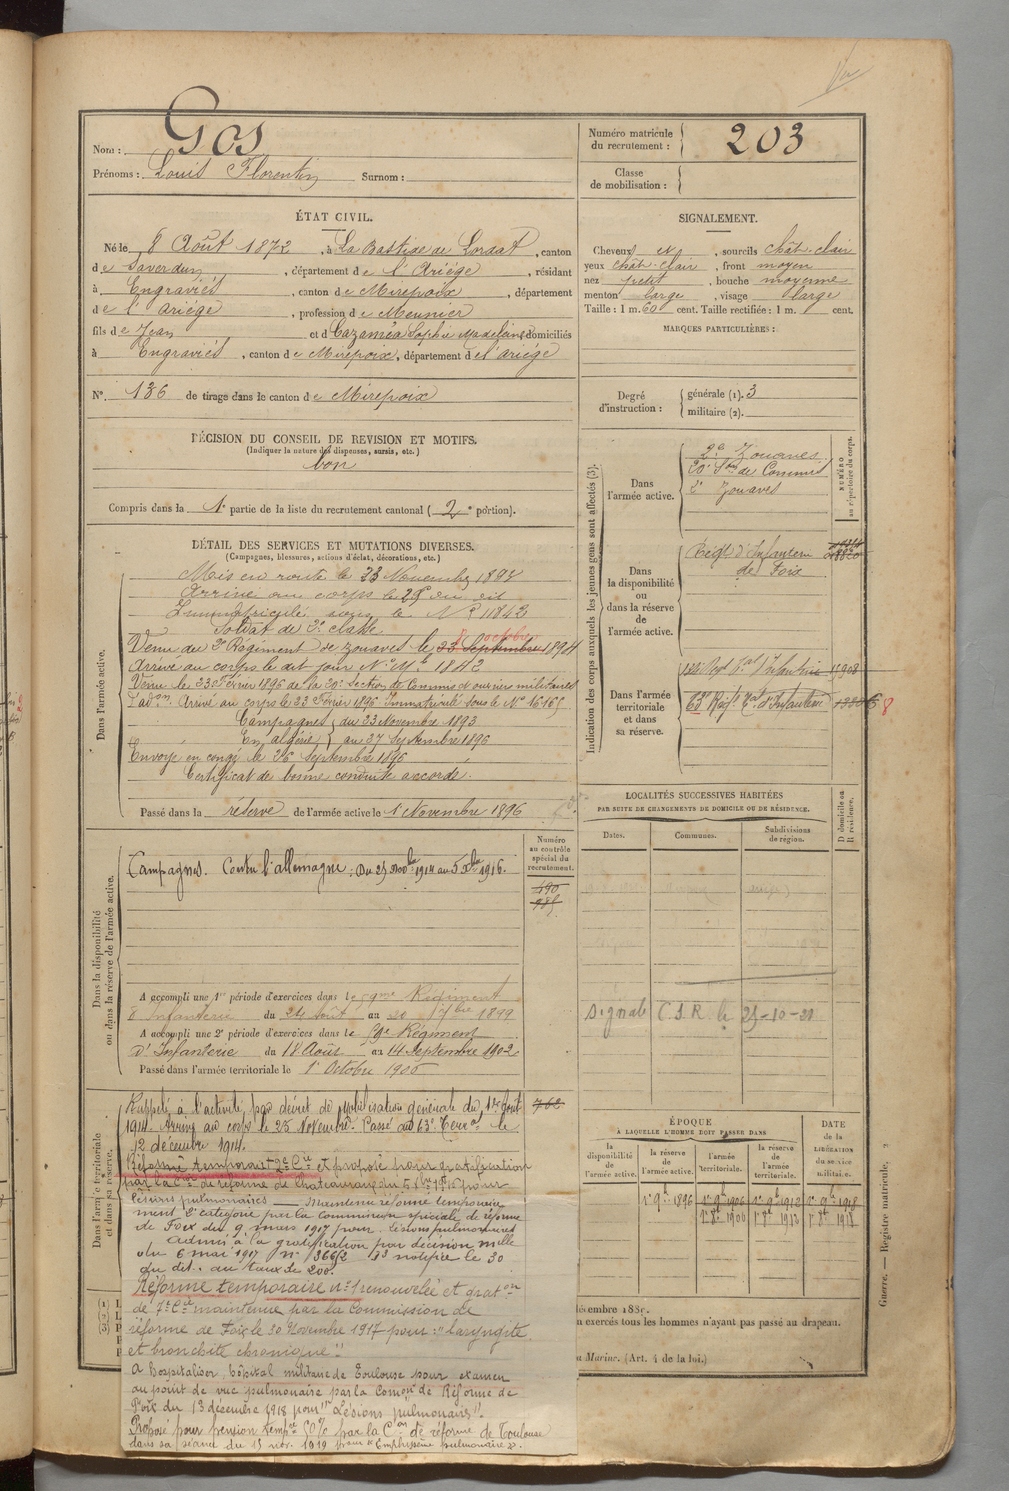 Nom : Gos
Prénoms : Louis Florentin Surnom :
Numéro matricule du recrutement : 203
Classe de mobilisation :
ÉTAT CIVIL.
Né le 8 Août 1872, à La Bastide de Lordat, canton
de Saverdun, département de l'Ariége, résidant
à Engraviés, canton de Mirepoix, département
de l'Ariége, profession de Meunier
fils de Jean et d Cazeméa Sophie Madeleine domiciliés
à Engraviés, canton de Mirepoix, département de l'ariége
N° 136 de tirage dans le canton de Mirepoix
DÉCISION DU CONSEIL DE REVISION ET MOTIFS.
(Indiquer la nature des dispenses, sursis, etc.)
bon
Compris dans la 1e partie de la liste du recrutement cantonal (2e portion).
SIGNALEMENT.
Cheveux , sourcils chât-clair
yeux chât-clair, front moyen
nez petit, bouche moyenne
menton large, visage large
Taille : 1 m. 60 cent. Taille rectifiée : 1 m. cent.
MARQUES PARTICULIÈRES :
Degré d'instruction : générale (1). 3
militaire (2).
DÉTAIL DES SERVICES ET MUTATIONS DIVERSES.
(Campagnes, blessures, actions d'éclat, décorations, etc.)
Dans l'armée active.
Mis en route le 23 Novembre 1893
Arrivé au corps le 25 du dit
Immatriculé sous le N° 11843
Soldat de 2e classe
Venu du 2e Régiment de zouaves le 23 Septembre 1894
octobre
Arrivé au corps le dit jour N° Mle 1842
Venu le 23 Février 1896 de la 20e Section de Commis et ouvriers militaires
d'adon Arrivé au corps le 23 Février 1896 Immatriculé sous le N° 16165
Campagnes du 23 Novembre 1893
En algérie au 27 Septembre 1896
Envoyé en congé le 26 Septembre 1896
Certificat de bonne conduite accordé.
Passé dans la réserve de l'armée active le 1er Novembre 1896
Indication des corps auxquels les jeunes gens sont affectés (3).
NUMÉRO au répertoire du corps.
Dans l'armée active.
2e Zouaves
20e Son de Commis
2e Zouaves
Dans la disponibilité ou dans la réserve de l'armée active.
Régt d'Infanterie
de Foix
Dans l'armée territoriale et dans sa réserve.
63e Régt Tal d'Infanterie
Dans la disponibilité ou dans la réserve de l'armée active.
Numéro au contrôle spécial du recrutement.
490
985
Campagnes. Contre l'allemagne : Du 25 Nobre 1914 au 5 Xbre 1916.
A accompli une 1re période d'exercices dans le 59me Régiment
d'Infanterie du 24 Août au 20 7bre 1899
A accompli une 2e période d'exercices dans le 59e Régiment
d'Infanterie du 18 Août au 14 Septembre 1902
Passé dans l'armée territoriale le 1er Octobre 1906
LOCALITÉS SUCCESSIVES HABITÉES
PAR SUITE DE CHANGEMENTS DE DOMICILE OU DE RÉSIDENCE.
Dates. Communes. Subdivisions de région. D domicile ou R résidence.
Signalé C.S.R. le 25-10-21
Dans l'armée territoriale et dans sa réserve.
Rappelé à l'activité par décret de mobilisation générale du 1er Août
762
1914. Arrivé au corps le 25 Novembre. Passé au 63e Terral le
12 décembre 1914.
Réformé temporairt 2e Cie et proposé pour gratification
par la Con de réforme de Chateauroux du 5 Xbre 1916 pour
lésions pulmonaires — Maintenu réformé temporaire
ment 2e catégorie par la Commission spéciale de réforme
de Foix du 9 mars 1917 pour lésions pulmonaires
Admis à la gratification par décision mlle
du 6 mai 1917 n° 36662 notifiée le 30
du dit. au taux de 200f
Réforme temporaire n° 1 renouvelée et graton
de 7e Cie maintenue par la Commission de
réforme de Foix le 30 Novembre 1917 pour : "laryngite
et bronchite chronique"
A hospitaliser, hôpital militaire de Toulouse pour examen
au point de vue pulmonaire par la Comon de Réforme de
Foix du 13 décembre 1918 pour "Lésions pulmonaires".
Proposé pour pension tempre 50% par la Con de réforme de Toulouse
dans sa séance du 15 1919 pour "Emphysème pulmonaire".
ÉPOQUE
À LAQUELLE L'HOMME DOIT PASSER DANS
la disponibilité de l'armée active. la réserve de l'armée active. l'armée territoriale. la réserve de l'armée territoriale.
DATE de la LIBÉRATION du service militaire.
1er 9bre 1896 1er 9bre 1906 1er 9bre 1912 1er 9bre 1918
1er 8bre 1906 1er 8bre 1912 1er 8bre 1918
décembre 188
n exercés tous les hommes n'ayant pas passé au drapeau.
a Marine. (Art. 4 de la loi.)
Guerre. — Registre matricule.